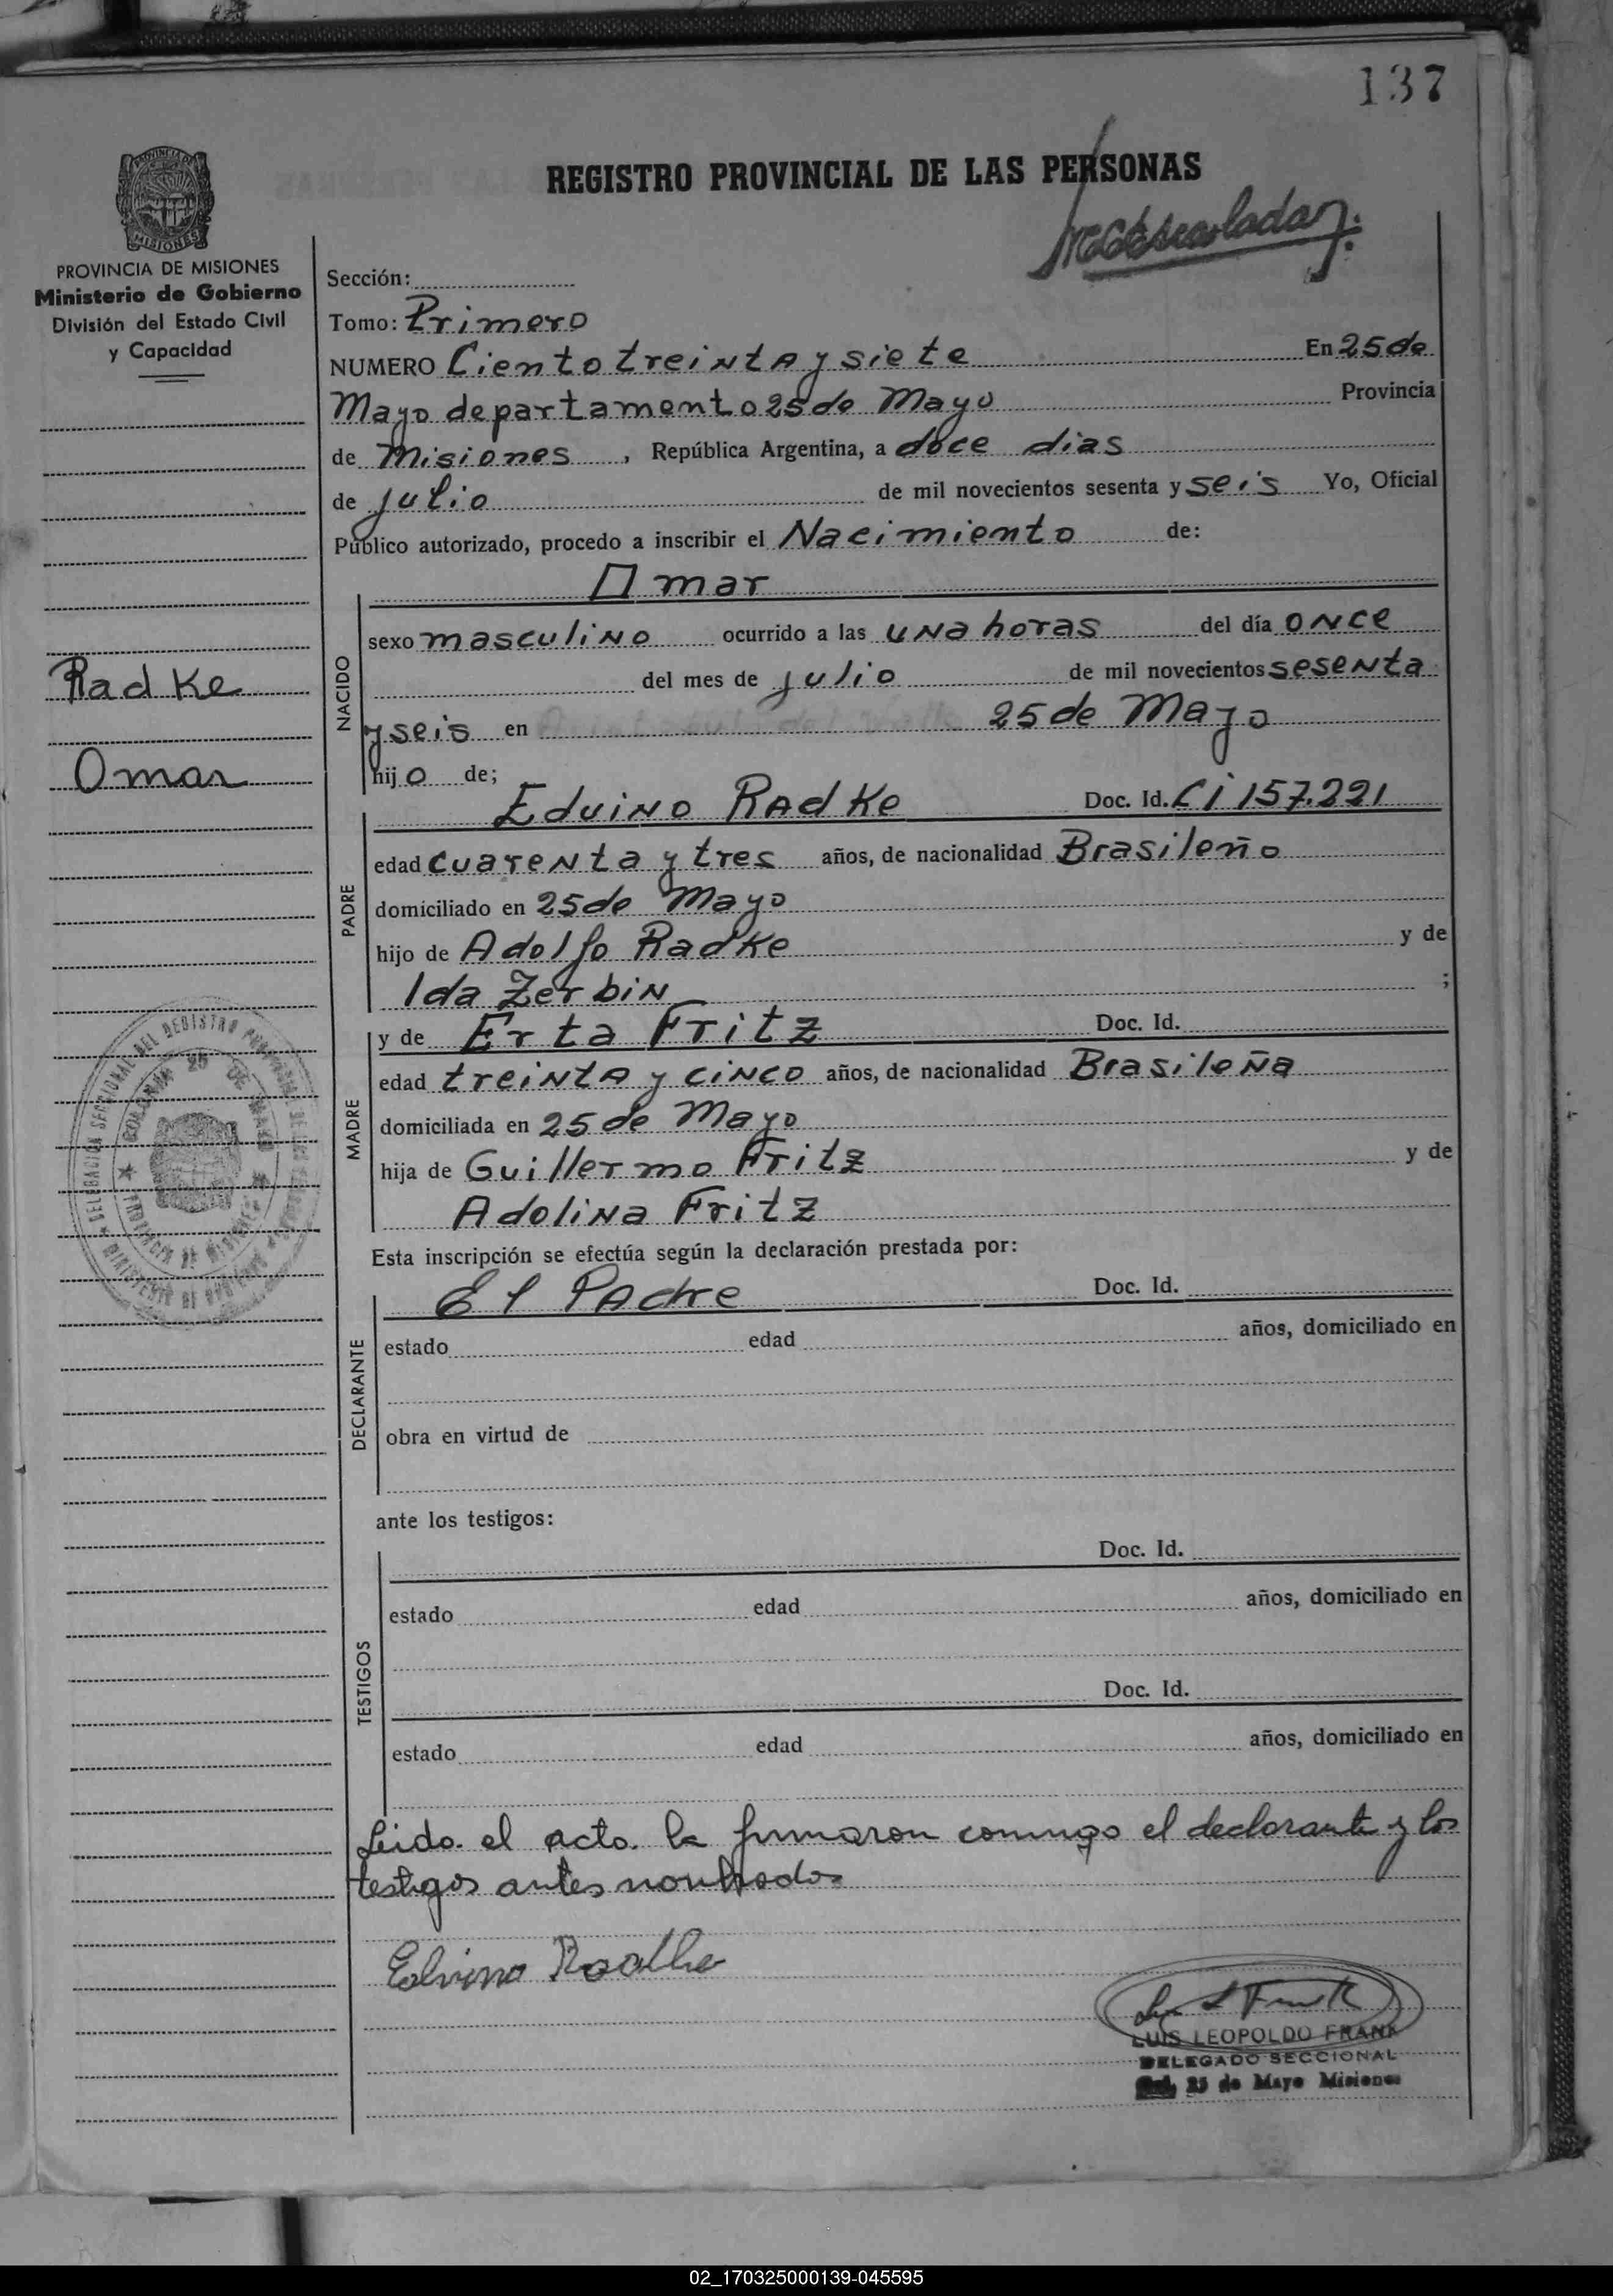 137
REGISTRO PROVINCIAL DE LAS PERSONAS
PROVINCIA DE MISIONES
Ministerio de Gobierno
División del Estado Civil
y Capacidad
Radke
Omar
Sección:
Tomo: Primero
NUMERO Ciento treinta y siete En 25 de
Mayo departamento 25 de Mayo Provincia
de Misiones, República Argentina, a doce dias
de julio de mil novecientos sesenta y seis Yo, Oficial
Público autorizado, procedo a inscribir el Nacimiento de:
Omar
NACIDO
sexo masculino ocurrido a las una horas del día once
del mes de julio de mil novecientos sesenta
y seis en 25 de Mayo
hijo de;
PADRE
Eduino Radke Doc. Id. Ci 157.221
edad cuarenta y tres años, de nacionalidad Brasileño
domiciliado en 25 de Mayo
hijo de Adolfo Radke y de
Ida Zerbin ;
MADRE
y de Erta Fritz Doc. Id.
edad treinta y cinco años, de nacionalidad Brasileña
domiciliada en 25 de Mayo
hija de Guillermo Fritz y de
Adolina Fritz
Esta inscripción se efectúa según la declaración prestada por:
DECLARANTE
El Padre Doc. Id.
estado edad años, domiciliado en
obra en virtud de
ante los testigos:
TESTIGOS
Doc. Id.
estado edad años, domiciliado en
Doc. Id.
estado edad años, domiciliado en
Leido el acto la firmaron conmigo el declarante y los
testigos antes nombrados
Edvino Radke
LUIS LEOPOLDO FRANK
DELEGADO SECCIONAL
25 de Mayo Misiones
02_170325000139-045595